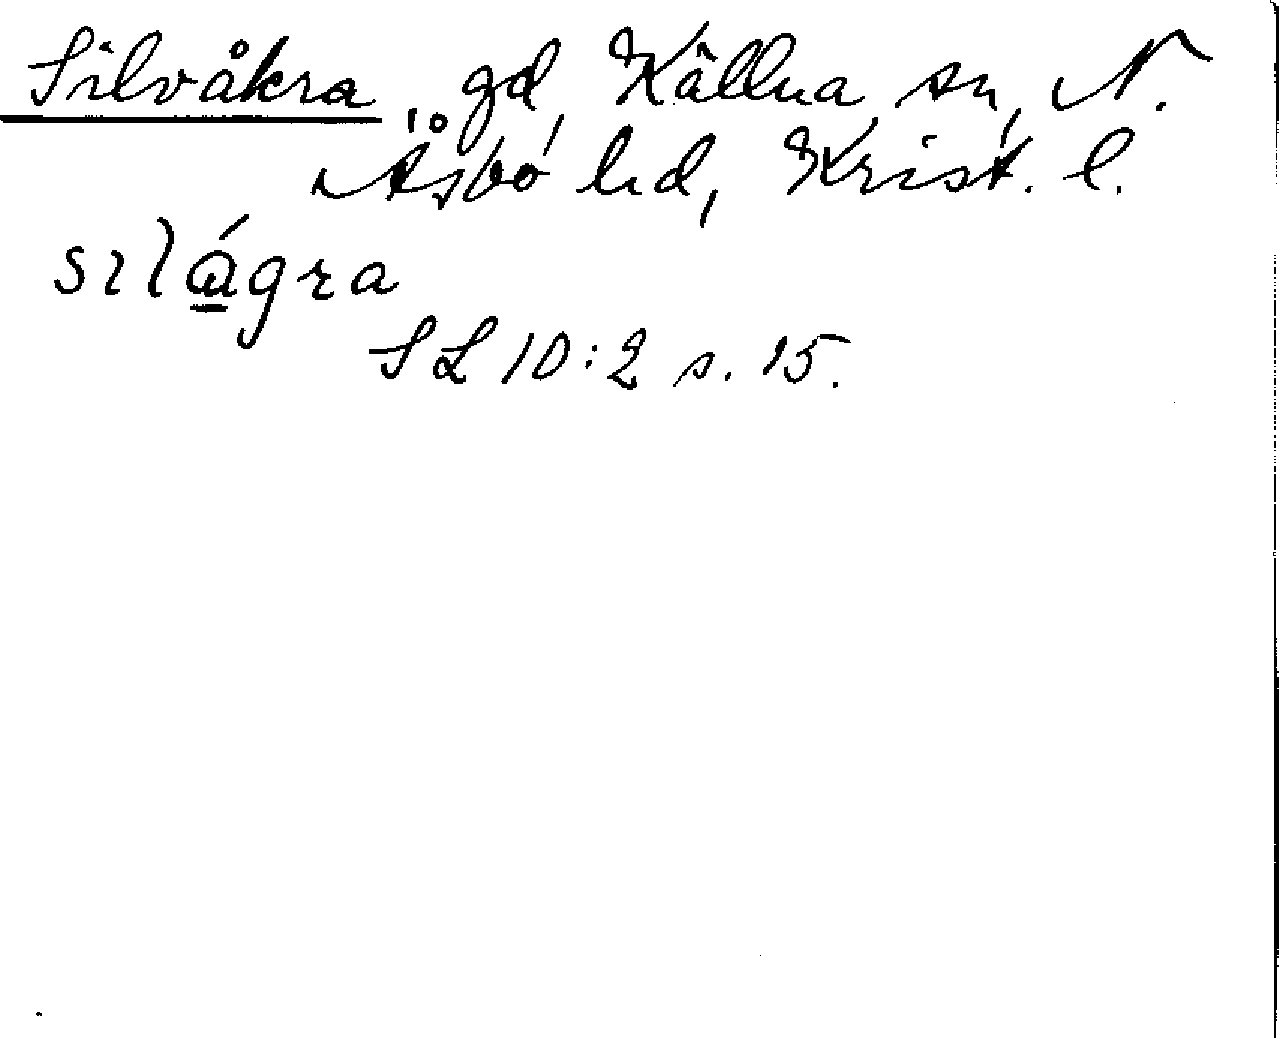 Silvåkra, gd, Källna sn, N.
Åsbo hd, Krist. l.
sılágra
SL 10:2 s. 15.